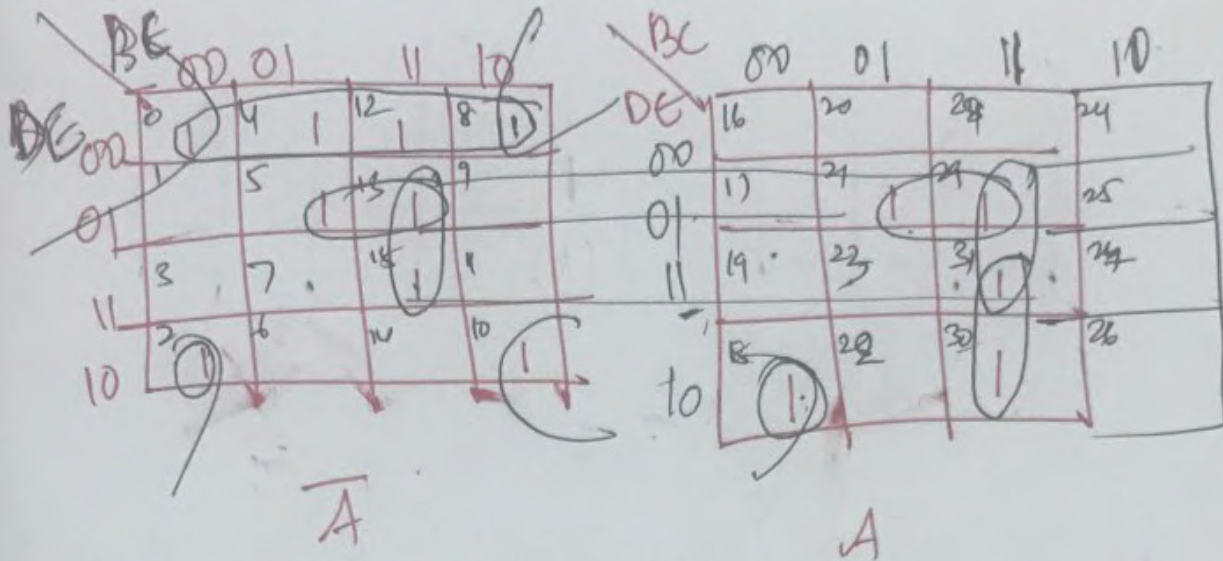 BC 00 01 11 10
DE 00 0 1 4 1 12 1 8 1
01 1 5 1 13 1 9
11 3 7 15 1
10 2 1 6 14 10 1
A
BC 00 01 11 10
DE 00 16 20 28 24
01 17 21 1 29 1 25
11 19 23 31 1 27
10 18 1 22 30 1 26
A